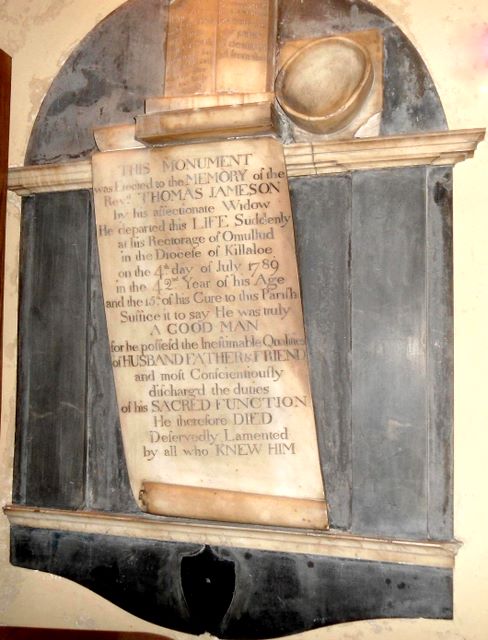 THIS MONUMENT
was Erected to the MEMORY of the
Revd. THOMAS JAMESON
by his affectionate Widow
He departed this LIFE Suddenly
at his Rectorage of Omullud
in the Diocese of Killaloe
on the 4th day of July 1789
in the 42nd Year of his Age
and the 15th of his Cure to this Parish
Suffice it to say He was truly
A GOOD MAN
for he possess'd the Inestimable Qualities
of HUSBAND FATHER & FRIEND
and most Conscientiously
discharg'd the duties
of his SACRED FUNCTION
He therefore DIED
Deservedly Lamented
by all who KNEW HIM